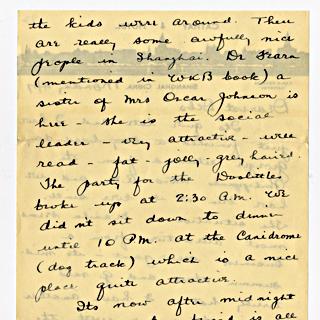 the kids were around. There
are really some awfully nice
people in Shanghai. Dr Fearn
(mentioned in WKB book) a
sister of Mrs Oscar Johnson is
here - she is the social
leader - very attractive - well
read - fat - jolly - grey haired.
The party for the Doolittles
broke up at 2:30 A.M. We
didn't sit down to dinner
until 10 P.M. at the Canidrome
(dog track) which is a nice
place quite attractive.
Its now after midnight
is all